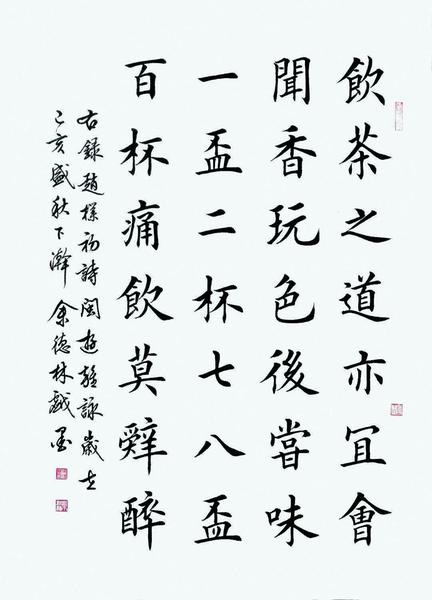 飲茶之道亦冝會
聞香玩色後嘗味
一盃二杯七八盃
百杯痛飲莫辤醉
右錄趙樸初詩閩遊雜詠歲在
己亥盛秋下澣余德林戲墨